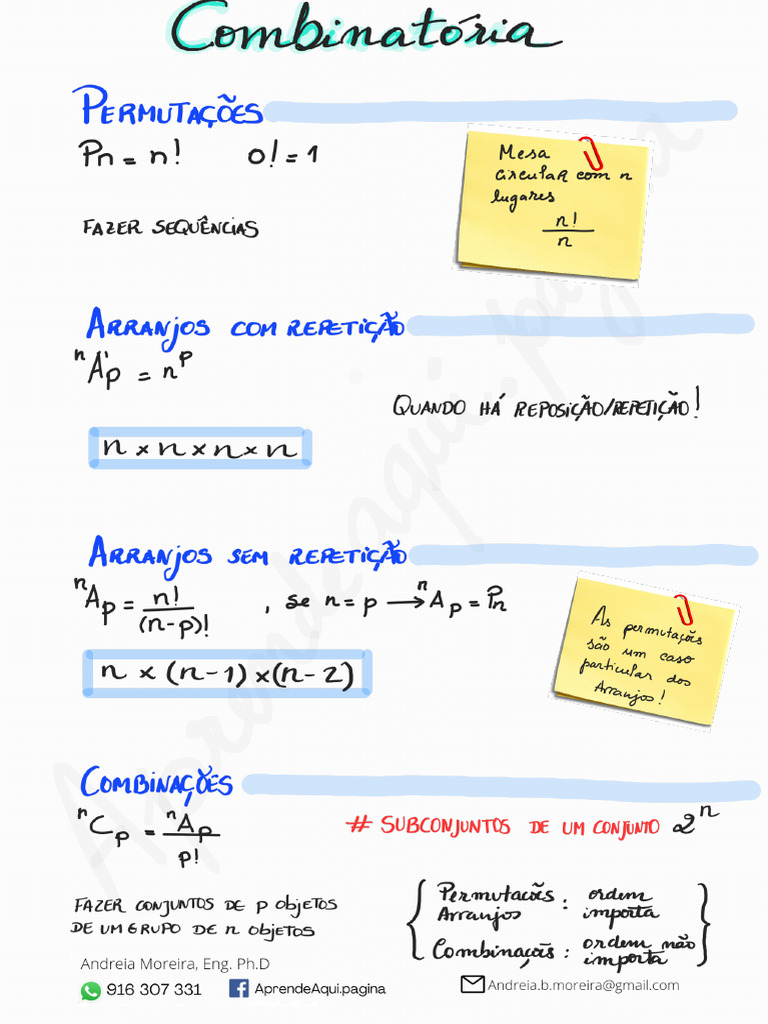 Combinatória
PERMUTAÇÕES
Pn = n!    0! = 1
Mesa
circular com n
lugares
n!
n
FAZER SEQUÊNCIAS
ARRANJOS COM REPETIÇÃO
ⁿA'p = nᵖ
QUANDO HÁ REPOSIÇÃO/REPETIÇÃO!
n × n × n × n
ARRANJOS SEM REPETIÇÃO
ⁿAp = n!/(n-p)! , se n = p → ⁿAp = Pn
n × (n-1) × (n-2)
As permutações
são um caso
particular dos
Arranjos!
COMBINAÇÕES
ⁿCp = ⁿAp/p!
# SUBCONJUNTOS DE UM CONJUNTO 2ⁿ
FAZER CONJUNTOS DE p OBJETOS
DE UM GRUPO DE n OBJETOS
Permutacõs : ordem
Arranjos importa
Combinaçõs : ordem não
importa
Andreia Moreira, Eng. Ph.D
916 307 331
AprendeAqui.pagina
Andreia.b.moreira@gmail.com
Aprendeaqui.pagina